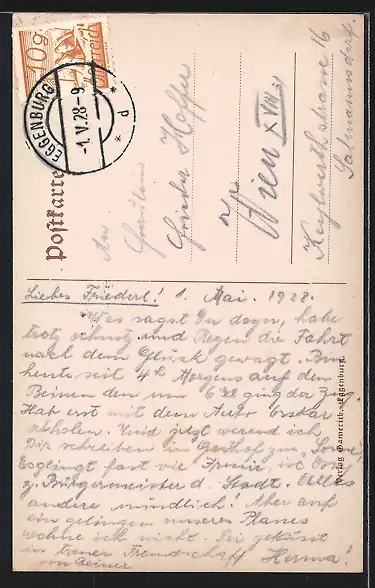 10g
EGGENBURG
-1.V.28-9
* d *
Postkarte
An
Fräulein
Frieda Hoffer
Wien XVIII
Keylwerthstrasse 16
Salmannsdorf.
Liebes Friederl! 1. Mai. 1928.
Was sagst Du dazu, habe
trotz Schmutz und Regen die Fahrt
nach dem Glück gewagt. Bin
heute seit 4h Morgens auf den
Beinen den um 6 ging der Zug.
Hab erst mit dem Auto Oskar
abholen. Und jetzt werend ich
Dir schreiben im Gasthof zur "Sonne"
fast wie ist
z. Bürgermeister d. Stadt. Alles
andere mündlich! Aber auf
ein gelingen unseres Planes
rechne ich nicht. Sei geküsst
in Treuer Freundschaft Herma!
von Deiner
Verlag Gamerith, Eggenburg.